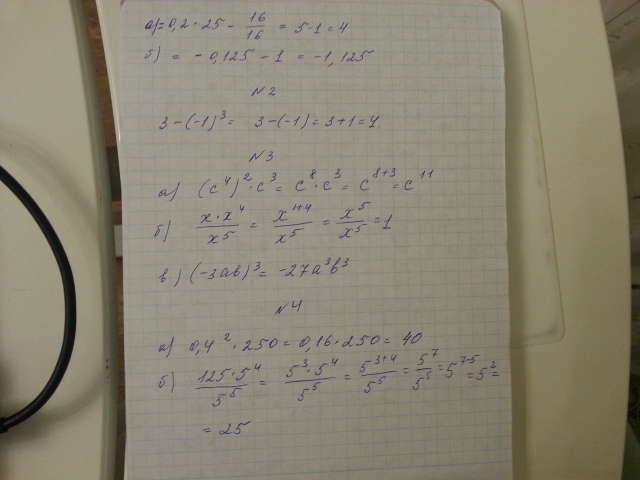 а) = 0,2 · 25 - 16/16 = 5-1 = 4
б) = - 0,125 - 1 = -1,125
N2
3 - (-1)³ = 3 - (-1) = 3+1 = 4
N3
а) (c⁴)² · c³ = c⁸ · c³ = c⁸⁺³ = c¹¹
б) x · x⁴ / x⁵ = x¹⁺⁴ / x⁵ = x⁵ / x⁵ = 1
в) (-3ab)³ = -27a³b³
N4
а) 0,4² · 250 = 0,16 · 250 = 40
б) 125 · 5⁴ / 5⁵ = 5³ · 5⁴ / 5⁵ = 5³⁺⁴ / 5⁵ = 5⁷ / 5⁵ = 5⁷⁻⁵ = 5² =
= 25